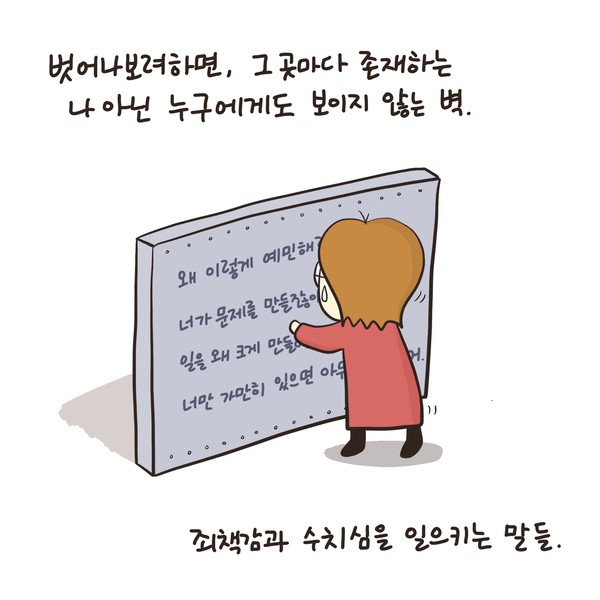 벗어나보려하면, 그 곳마다 존재하는
나 아닌 누구에게도 보이지 않는 벽.
왜 이렇게 예민해?
너가 문제를 만들잖아
일을 왜 크게 만들어
너만 가만히 있으면
죄책감과 수치심을 일으키는 말들.